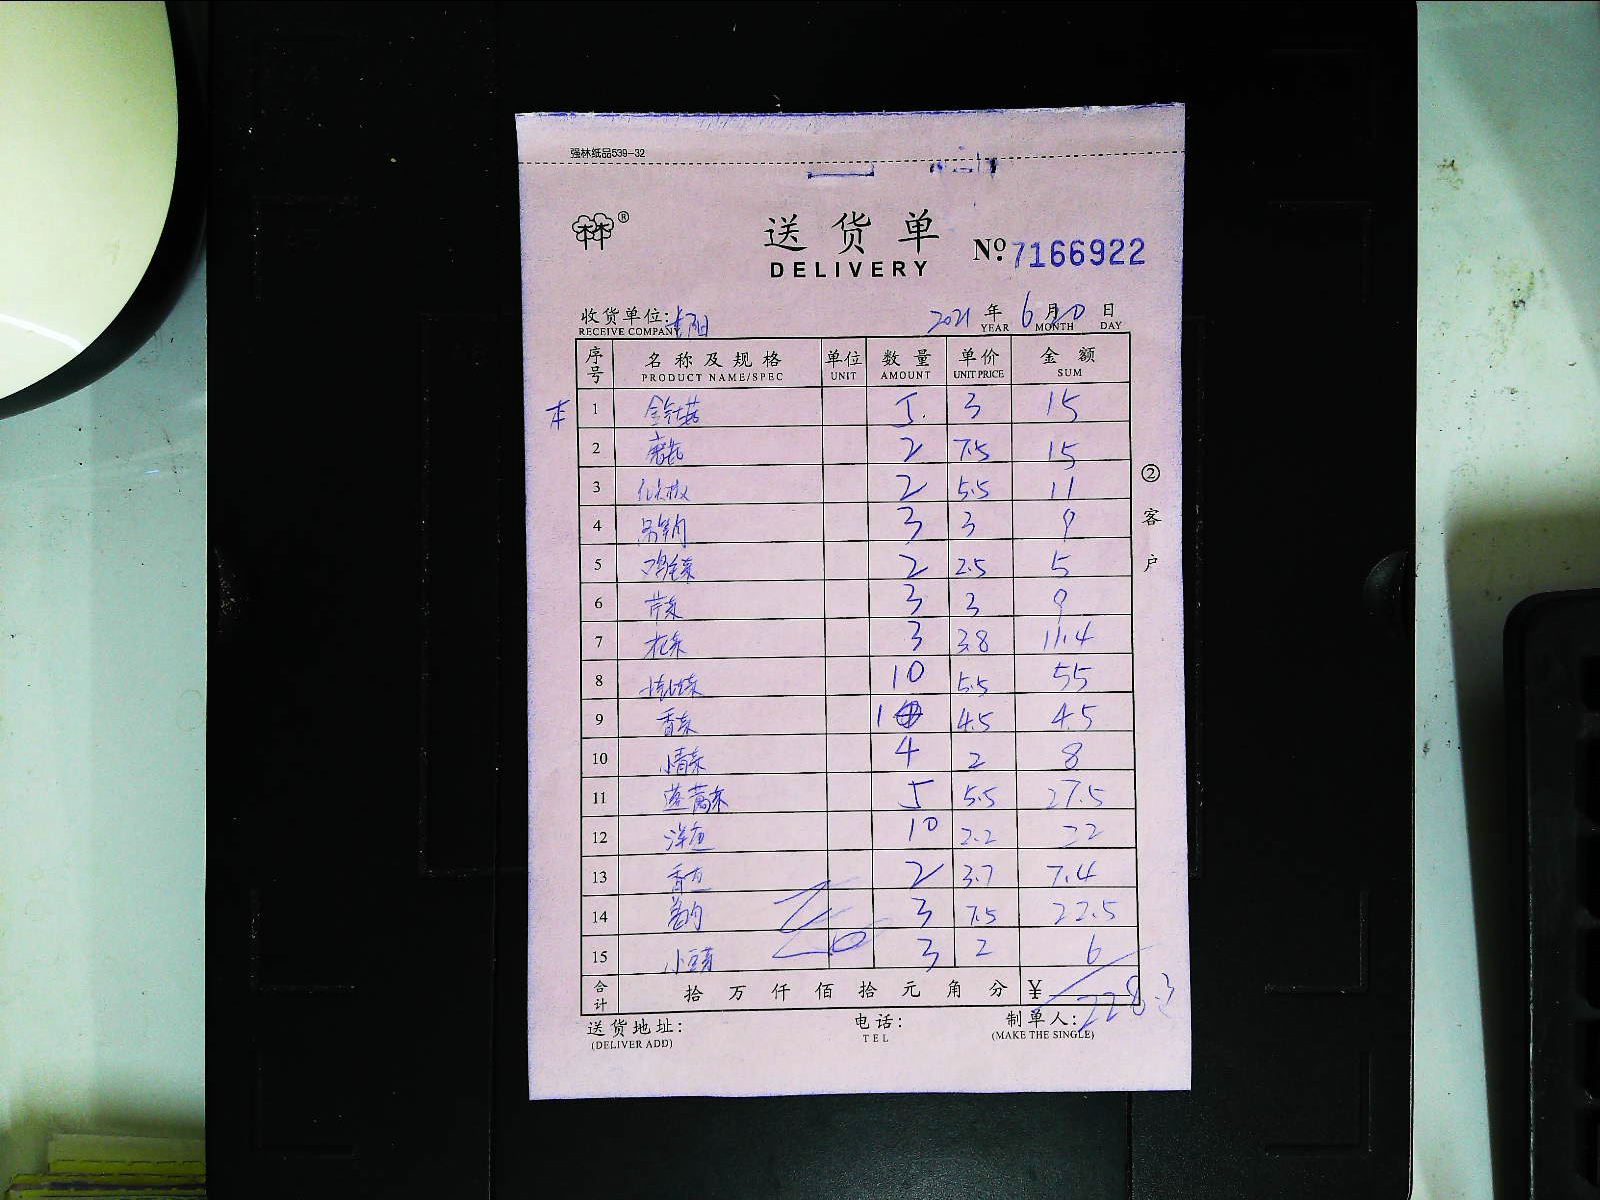 强林纸品539-32
林 ®
送货单 №:7166922
DELIVERY
收货单位: 2021 年 6 月 20 日
RECEIVE COMPANY YEAR MONTH DAY
序号 名称及规格 单位 数量 单价 金额
PRODUCT NAME/SPEC UNIT AMOUNT UNIT PRICE SUM
本 1 金针菇 5 3 15
2 蘑菇 2 7.5 15
3 2 5.5 11
4 3 3 9
5 鸡毛菜 2 2.5 5
6 芹菜 3 3 9
7 花菜 3 3.8 11.4
8 10 5.5 55
9 香菜 1 4.5 4.5
10 小青菜 4 2 8
11 蓬蒿菜 5 5.5 27.5
12 洋葱 10 2.2 22
13 香葱 2 3.7 7.4
14 3 7.5 22.5
15 小豆芽 3 2 6
合计 拾 万 仟 佰 拾 元 角 分 ¥ 228.3
送货地址: 电话: 制单人:
(DELIVER ADD) TEL (MAKE THE SINGLE)
②客户